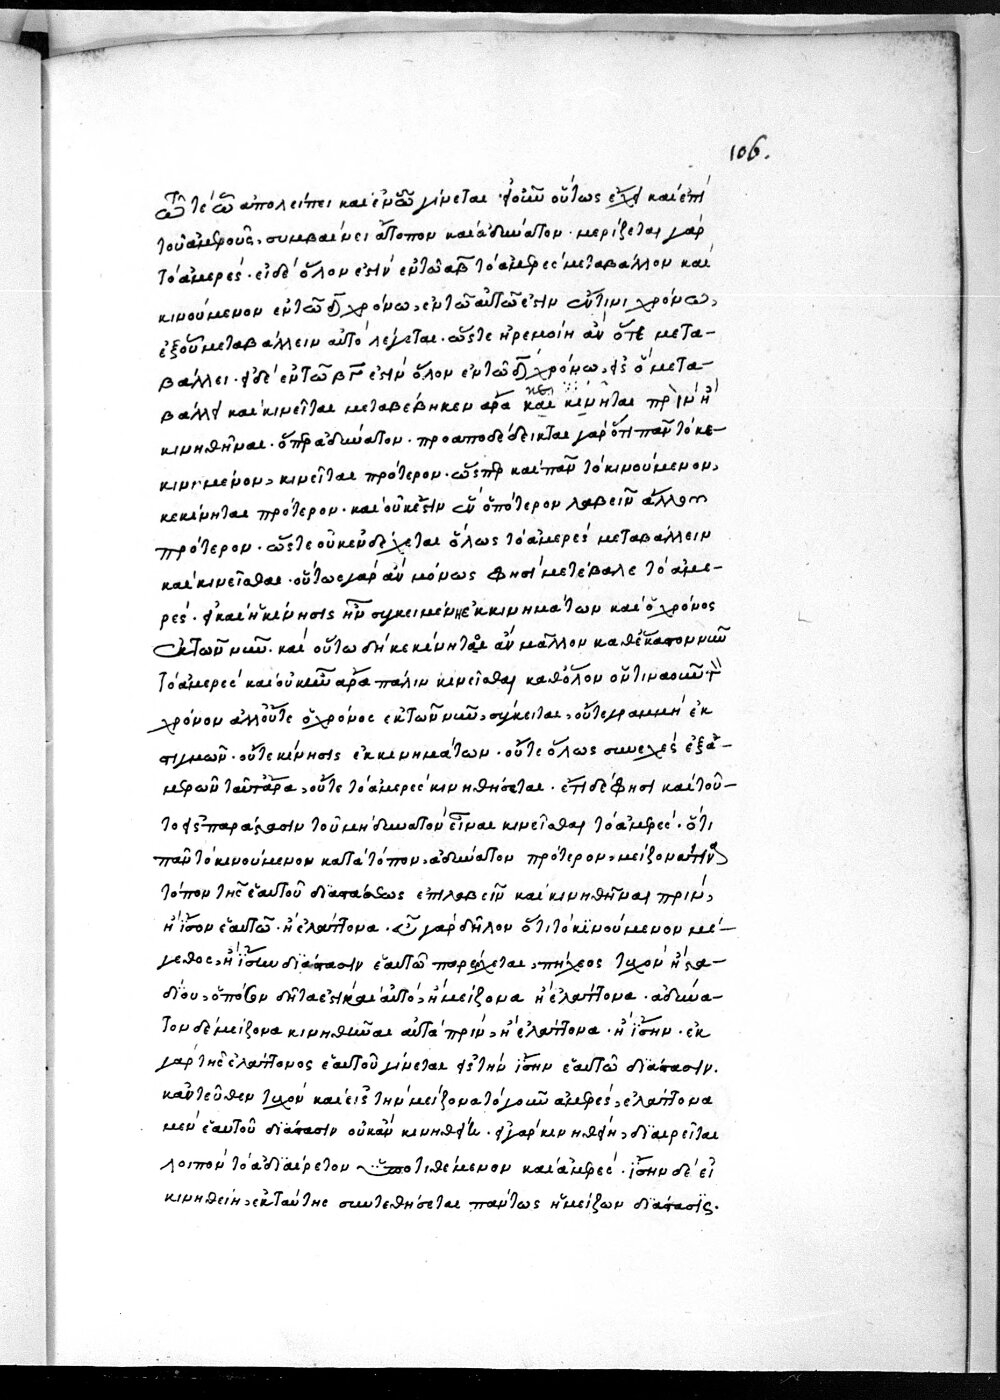 106.
τε ὃ ἀπολείπει καὶ ἐν ὧ γίνεται. εἰ οὖν οὕτως ἔχει καὶ ἐπὶ
τοῦ ἀμεροῦς, συμβαίνει ἄτοπον καὶ ἀδύνατον. μερίζεται γὰρ
τὸ ἀμερές. εἰ δὲ ὅλον ἐστὶν ἐν τῶ αβ τὸ ἀμερὲς μεταβάλλον καὶ
κινούμενον ἐν τῶ χρόνω, ἐν τῶ αὐτῶ ἐστιν ἔν τινι χρόνω,
ἐξ οὗ μεταβάλλειν αὐτὸ λέγεται. ὥστε ἠρεμοίη ἂν ὅτε μετα-
βάλλει. εἰ δὲ ἐν τῶ βγ ἐστὶν ὅλον ἐν τῶ χρόνω, εἰς ὃ μετα-
βάλλει καὶ κινεῖται μεταβέβηκεν ἄρα καὶ κεκίνηται πρὶν ἢ
κινηθῆναι. ὅπερ ἀδύνατον. προαποδέδεικται γὰρ ὅτι πᾶν τὸ κε-
κινημένον, κινεῖται πρότερον. ὥσπερ καὶ πᾶν τὸ κινούμενον,
κεκίνηται πρότερον. καὶ οὐκ ἔστιν ὁπότερον λαβεῖν ἄλλου
πρότερον. ὥστε οὐκ ἐνδέχεται ὅλως τὸ ἀμερὲς μεταβάλλειν
καὶ κινεῖσθαι. οὕτω γὰρ ἂν μόνως φησὶ μετέβαλε τὸ ἀμε-
ρές. εἰ καὶ ἡ κίνησις ἦν συγκειμένη ἐκ κινημάτων καὶ ὁ χρόνος
ἐκ τῶν νῦν. καὶ οὕτω δὴ κεκίνηται ἂν μᾶλλον καθ' ἕκαστον νῦν
τὸ ἀμερὲς καὶ οὐκ ἄρα πάλιν κινεῖσθαι καθόλου οὕτινα οὖν
χρόνον ἀλλ' οὔτε ὁ χρόνος ἐκ τῶν νῦν, σύγκειται, οὔτε γραμμὴ ἐκ
στιγμῶν. οὔτε κίνησις ἐκ κινημάτων. οὔτε ὅλως συνεχὲς ἐξ ἀ-
μερῶν ταῦτ' ἄρα, οὔτε τὸ ἀμερὲς κινηθήσεται. ἔτι δέ φησι καὶ τοῦ-
το εἰς παράστασιν τοῦ μὴ δυνατὸν εἶναι κινεῖσθαι τὸ ἀμερές. ὅτι
πᾶν τὸ κινούμενον κατὰ τόπον, ἀδύνατον πρότερον, μείζονα τινὰ
τόπον τῆς ἑαυτοῦ διαστάσεως ἐπιλαβεῖν καὶ κινηθῆναι πρὶν,
ἢ ἴσον ἑαυτῶ. ἢ ἐλάττονα. γὰρ δῆλον ὅτι τὸ κινούμενον μέ-
γεθος, ἢ ἴσην διάστασιν ἑαυτῶ παρέρχεται, πήχεος τυχὸν ἢ στα-
δίου, ὁπόσον δῆτα ἐστὶ καὶ αὐτὸ, ἢ μείζονα ἢ ἐλάττονα. ἀδύνα-
τον δὲ μείζονα κινηθῆναι αὐτὰ πρὶν, ἢ ἐλάττονα. ἢ ἴσην. ἐκ
γὰρ τῆς ἐλάττονος ἑαυτοῦ γίνεται εἰς τὴν ἴσην ἑαυτῶ διάστασιν.
κἀντεῦθεν τυχὸν καὶ εἰς τὴν μείζονα τὸ γοῦν ἀμερὲς, ἐλάττονα
μὲν ἑαυτοῦ διάστασιν οὐκ ἂν κινηθείη. εἰ γὰρ κινηθείη, διαιρεῖται
λοιπὸν τὸ ἀδιαίρετον ὑποτιθέμενον καὶ ἀμερές. ἴσην δὲ εἰ
κινηθείη, ἐκ ταύτης συντεθήσεται πάντως ἡ μείζων διάστασις.